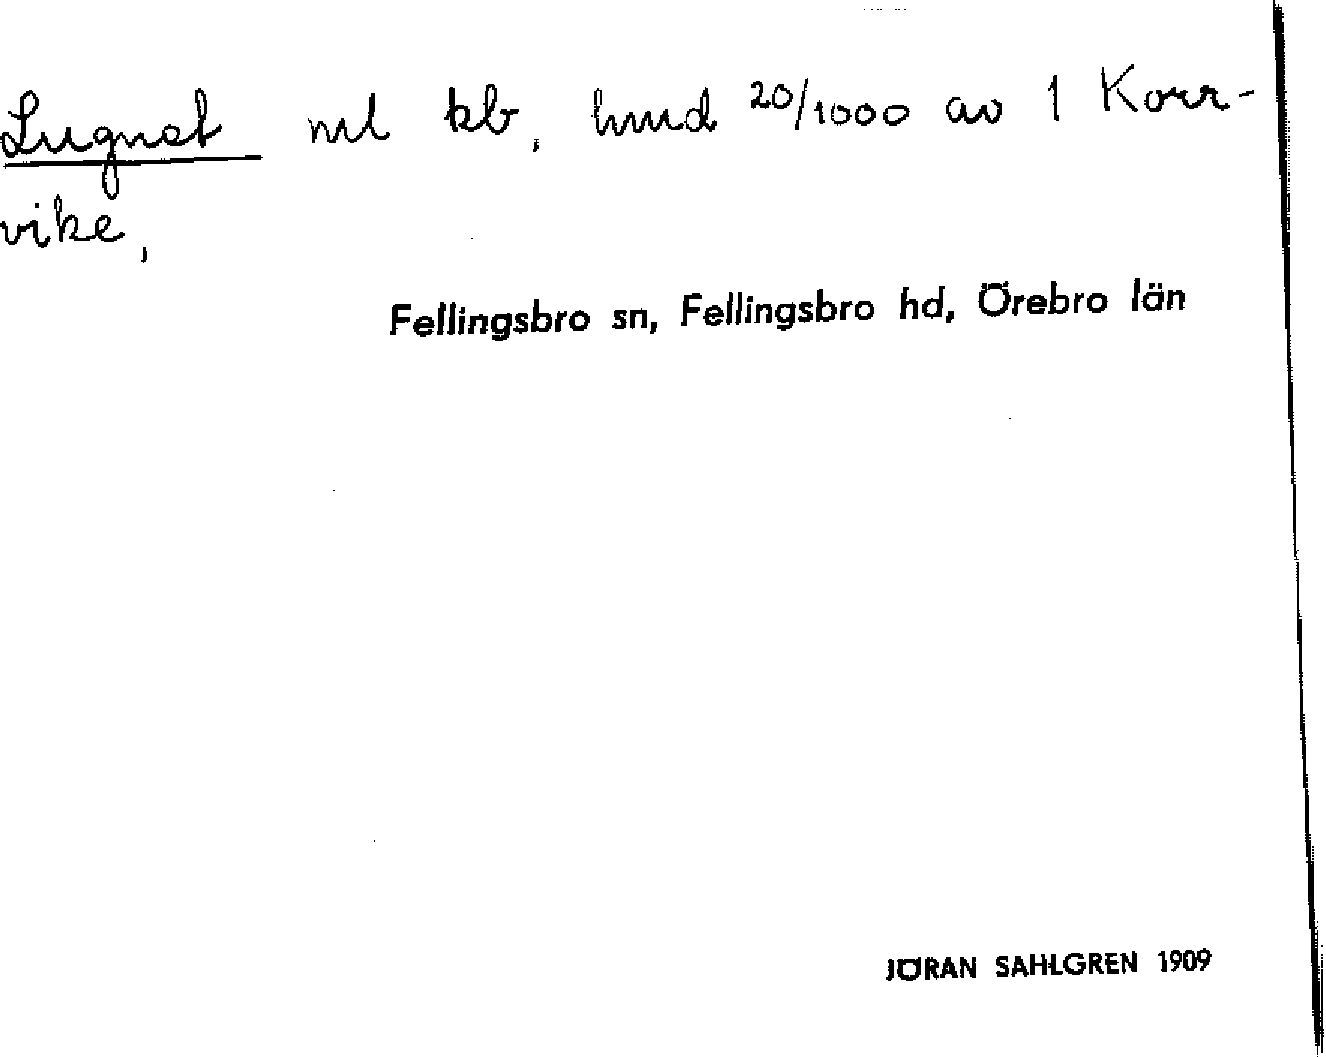 Lugnet ml kb, hmd 20/1000 av 1 Korr-
vike,
Fellingsbro sn, Fellingsbro hd, Örebro län
JÖRAN SAHLGREN 1909